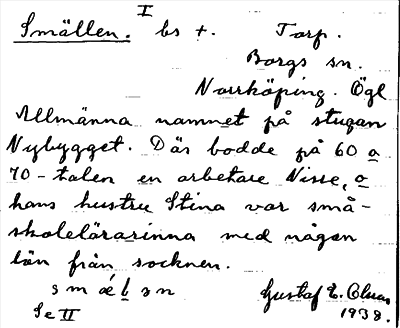 I
Smällen. bs +. Torp.
Borgs sn.
Norrköping. Ögl
Allmänna namnet på stugan
Nybygget. Där bodde på 60 a
70-talen en arbetare Nisse, o
hans hustru Stina var små-
skolelärarinna med någon
lön från socknen.
smǽlən Gustaf E. Olsson
Se II 1938.